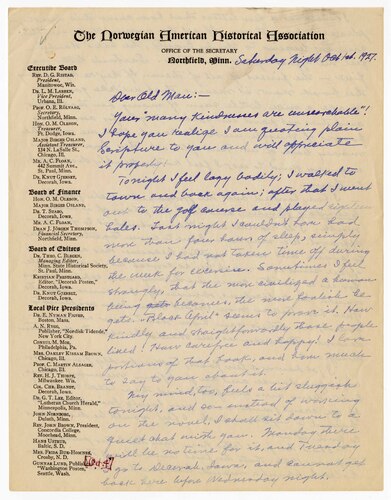 The Norwegian American Historical Association
OFFICE OF THE SECRETARY
Northfield, Minn. Saturday Night Oct 1st. 1927.
Executive Board
REV. D. G. RISTAD,
President,
Manitowoc, Wis.
DR. L. M. LARSEN,
Vice President,
Urbana, Ill.
PROF. O. E. RÖLVAAG,
Secretary,
Northfield, Minn.
HON. O. M. OLESON,
Treasurer,
Ft. Dodge, Iowa.
MAJOR BIRGER OSLAND,
Assistant Treasurer,
134 N. LaSalle St.,
Chicago, Ill.
MR. A. C. FLOAN,
442 Summit Ave.,
St. Paul, Minn.
DR. KNUT GJERSET,
Decorah, Iowa.
Board of Finance
HON. O. M. OLESON,
MAJOR BIRGER OSLAND,
DR. T. STABO,
Decorah, Iowa.
MR. A. C. FLOAN,
DEAN J. JÖRGEN THOMPSON,
Financial Secretary,
Northfield, Minn.
Board of Editors
DR. THEO. C. BLEGEN,
Managing Editor,
Minn. State Historical Society,
St. Paul, Minn.
KRISTIAN PRESTGARD,
Editor, "Decorah Posten",
Decorah, Iowa.
DR. KNUT GJERSET,
Decorah, Iowa.
Local Vice Presidents
DR. E. NYMAN FIGVED,
Boston, Mass.
A. N. RYGG,
Publisher, "Nordisk Tidende",
New York City.
CONSUL M. MOE,
Philadelphia, Pa.
MRS. OAKLEY KISSAM BROWN,
Chicago, Ill.
PROF. C. MARTIN ALSAGER,
Chicago, Ill.
REV. H. J. THORPE,
Milwaukee, Wis.
DR. CHR. BRANDT,
Decorah, Iowa.
DR. G. T. LEE, Editor,
"Lutheran Church Herald",
Minneapolis, Minn.
JOHN KIRKHUS,
Duluth, Minn.
REV. JOHN BROWN, President,
Concordia College,
Moorhead, Minn.
HANS USTRUD,
Baltic, S. D.
MRS. FRIDA BUE-HOMNES,
Crosby, N. D.
GUNNAR LUND, Publisher,
"Washington Posten",
Seattle, Wash.
Dear Old Man:-
Your many kindnesses are unsearchable!
I hope you realize I am quoting plain
Scripture to you and will appreciate
it properly!
Tonight I feel lazy bodily; I walked to
town and back again; after that I went
out to the golf course and played
holes. Last night I couldn't have had
more than four hours of sleep, simply
because I had not taken time off during
the week for exercise. Sometimes I feel
strongly, that the more civilized a human
being becomes, the more foolish he
acts. "Black April" seems to prove it. How
kindly and straightforwardly those people
lived! How carefree and happy! I love
portions of that book, and have much
to say to you about it.
My mind, too, feels a bit sluggish
tonight, and so instead of working
on the novel, I shall sit down to a
quiet chat with you. Monday there
will be no time for it, and Tuesday
I go to Decorah, Iowa, and cannot get
back here before Wednesday night.